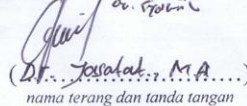 (Dr. Jasafat, MA)
nama terang dan tanda tangan